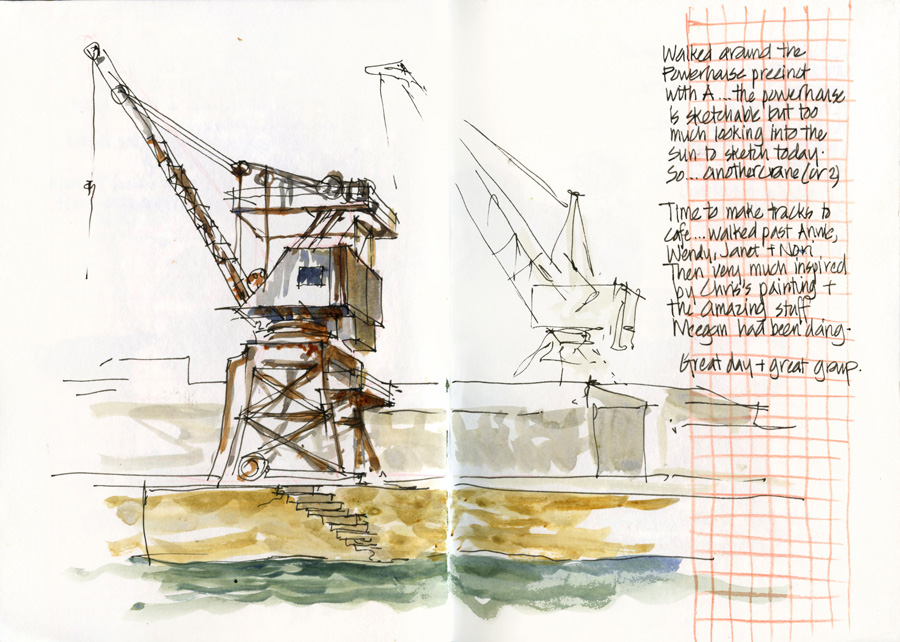 Walked around the
Powerhouse precinct
with A...the powerhouse
is sketchable but too
much looking into the
sun to sketch today.
So... another crane (or 2)
Time to make tracks to
cafe... walked past Annie,
Wendy, Janet + Nori
Then very much inspired
by Chris's painting +
the amazing stuff
Meegan had been doing.
Great day + great group.